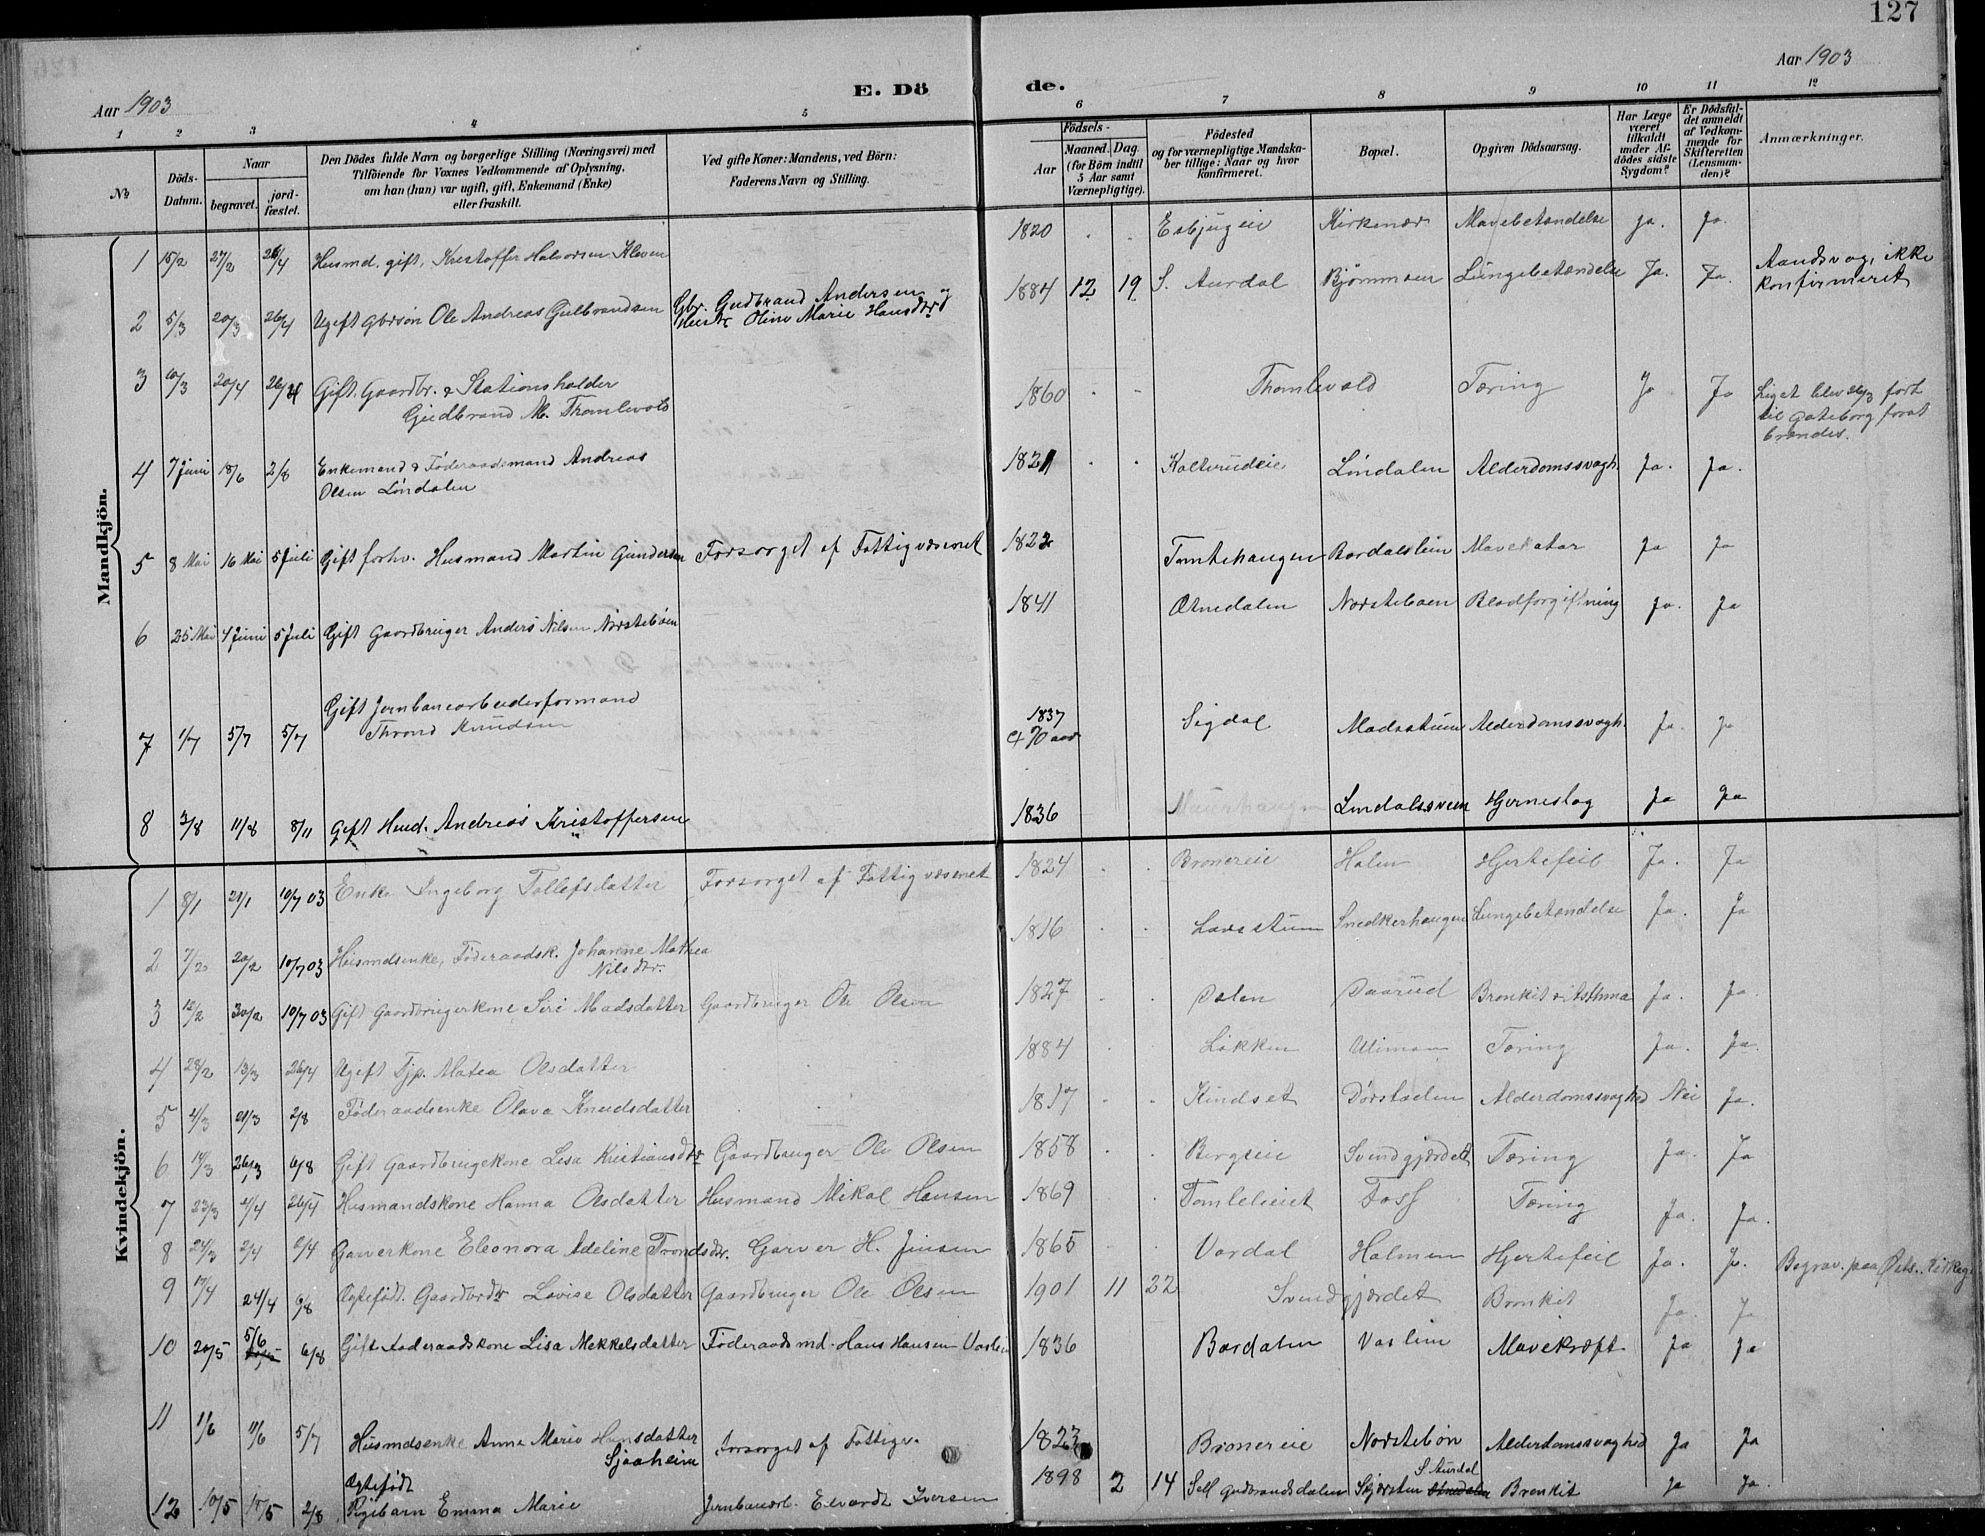 127
Aar 1903
E. Dö
de.
Aar 1903
1 2 3 4 5 6 7 8 9 10 11 12
No
Döds-Datum.
Naar
begravet.
jord-fæstet.
Den Dödes fulde Navn og borgerlige Stilling (Næringsvei) med
Tilföiende for Voxnes Vedkommende af Oplysning,
om han (hun) var ugift, gift, Enkemand (Enke)
eller fraskilt.
Ved gifte Koner: Mandens, ved Börn:
Faderens Navn og Stilling.
Födsels-
Aar
Maaned. Dag
(for Börn indtil
5 Aar samt
Værnepligtige).
Födested
og for værnepligtige Mandska-
ber tillige: Naar og hvor
konfirmeret.
Bopæl.
Opgiven Dödsaarsag.
Har Læge
været
tilkaldt
under Af-
dödes sidste
Sygdom?
Er Dödsfal-
det anmeldt
af Vedkom-
mende for
Skifteretten
(Lensman-
den)?
Anmærkninger.
Mandkjön.
1 15/2 27/2 26/4 Husmd. gift, Kristoffer Halvorsen Kleven 1820 . . Esbjugeie Kirkenær Mavebetændelse ja. Ja.
2 5/3 20/3 26/4 Ugift Gbrsön Ole Andreas Gulbrandsen Gbr. Gudbrand Andersen og
Hustr Oline Marie Hansdtr 1884 12 19 S. Aurdal Bjömmoen Lungebetændelse Ja. Ja. Aandsvag, ikke
konfirmeret
3 10/3 20/4 26/4 Gift. Gaardbr. & Stationsholder
Gudbrand M. Thomlevold 1860 - - Thomlevold Tæring Ja Ja Liget blev 26/3 fört
til Gøteborg forat
brændes.
4 7 juni 18/6 2/8 Enkemand & Föderaadsmand Andreas
Olsen Lindalen 1821 . . Kalterudeie Lindalen Alderdomssvagh. Ja. Ja.
5 8 Mai 16 Mai 5 Juli Gift forhv. Husmand Martin Gundersen Forsørget af Fattigvæsenet 1822 Tomtehaugen Bardalslien Mavekatar Ja Ja
6 25 Mai 4 Juni 5 Juli Gift Gaardbruger Anders Nilsen Nörsteböen 1841 Etnedalen Nörsteböen Blodforgiftning Ja. Ja
7 1/7 5/7 5/7 Gift Jernbanearbeiderformand
Thrond Knudsen 1837
ct 70 aar Sigdal Madsstuen Alderdomssvagh. Ja. Ja
8 3/8 11/8 8/11 Gift Husd. Andreas Kristoffersen 1836 Maurhaugen Lindalssveen Hjerneslag Ja Ja
Kvindekjön.
1 8/1 21/1 10/7 03 Enke Ingeborg Tollefsdatter Forsørget af Fattigvæsenet 1824 . . Bronereie Holen Hjertefeil Ja. Ja
2 7/2 20/2 10/7 03 Husmdsenke, Föderaadsk. Johanne Mathea
Nilsdtr. 1816 . . Larsstuen Snedkerhaugen Lungebetændelse Ja. Ja
3 12/2 20/2 10/7 03 Gift Gaardbrugerkone Siri Madsdatter Gaardbruger Ole Olsen 1827 . . Dalen Daarud Bronkit & Asthma Ja. Ja.
4 28/2 13/3 26/4 Ugift Tjp. Matea Olsdatter 1884 . . Løkken Ulimoen Tæring Ja. Ja.
5 4/3 21/3 2/8 Föderaadsenke Olava Knudsdatter 1817 . . Kindset Dörstaden Alderdomssvaghed Nei Ja.
6 14/3 26/3 6/8 Gift Gaardbrugekone Lisa Kristiansdtr Gaardbruger Ole Olsen 1858 . . Bergseie Svendgjærdet Tæring Ja. Ja
7 23/3 4/4 26/4 Husmandskone Hanna Olsdatter Husmand Mikal Hansen 1869 . . Tomleleiet Foss Tæring Ja. Ja.
8 24/3 2/4 2/4 Garverkone Eleonora Adeline Trondsdtr. Garver H. Jensen 1865 . . Vardal Holmen Hjertefeil Ja. Ja. Begrav. paa Østs. Kirkeg.
9 17/4 24/4 9/8 Ægtefödt. Gaardbrdtr Lovise Olsdatter Gaardbruger Ole Olsen 1901 11 22 Svendgjærdet Bronkit Ja. Ja
10 20/5 5/6 6/8 Gift Föderaadskone Lisa Mekkelsdatter Föderaadsmd. Hans Hansen Vaslien 1836 Bardalen Vaslien Mavekræft Ja Ja
11 1/6 11/6 5/7 Husmdsenke Anne Marie Hansdatter
Sjaaheim Forsørget af Fattigv. 1823 Bronereie Nörstebön Alderdomssvaghed Ja Ja
12 10/5 15/5 2/8 Ægtefödt
Pigebarn Emma Marie Jernbanearb. Edvardt Iversen 1898 2 14 Sell Gudbrandsdalen Skjærstein S Aurdal Bronkit Ja Ja.